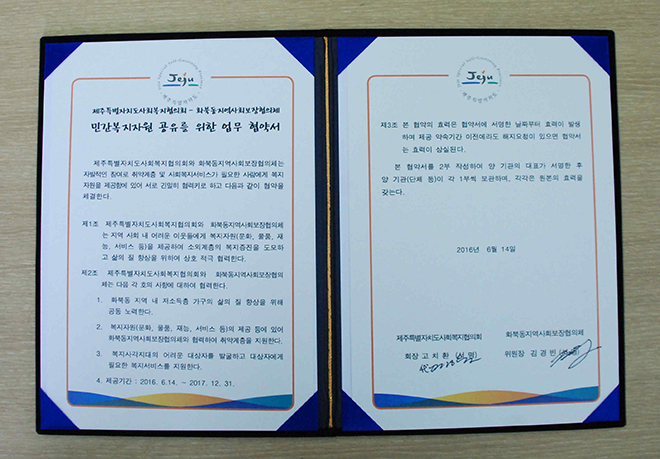 Jeju
제주특별자치도사회복지협의회 - 화북동지역사회보장협의체
민간복지자원 공유를 위한 업무 협약서
제주특별자치도사회복지협의회와 화북동지역사회보장협의체는
자발적인 참여로 취약계층 및 사회복지서비스가 필요한 사람에게 복지
자원을 제공함에 있어 서로 긴밀히 협력키로 하고 다음과 같이 협약을
체결한다.
제1조 제주특별자치도사회복지협의회와 화북동지역사회보장협의체
는 지역 사회 내 어려운 이웃들에게 복지자원(문화, 물품, 재
능, 서비스 등)을 제공하여 소외계층의 복지증진을 도모하
고 삶의 질 향상을 위하여 상호 적극 협력한다.
제2조 제주특별자치도사회복지협의회와 화북동지역사회보장협의
체는 다음 각 호의 사항에 대하여 협력한다.
1. 화북동 지역 내 저소득층 가구의 삶의 질 향상을 위해
공동 노력한다.
2. 복지자원(문화, 물품, 재능, 서비스 등)의 제공 등에 있어
화북동지역사회보장협의체와 협력하여 취약계층을 지원한다.
3. 복지사각지대의 어려운 대상자를 발굴하고 대상자에게
필요한 복지서비스를 지원한다.
4. 제공기간 : 2016. 6.14. ~ 2017. 12. 31.
Jeju
제주특별자치도
제3조 본 협약의 효력은 협약서에 서명한 날짜부터 효력이 발생
하며 제공 약속기간 이전에라도 해지요청이 있으면 협약서
는 효력이 상실된다.
본 협약서를 2부 작성하여 양 기관의 대표가 서명한 후
양 기관(단체 등)이 각 1부씩 보관하며, 각각은 원본의 효력을
갖는다.
2016년 6월 14일
제주특별자치도사회복지협의회 화북동지역사회보장협의체
회장 고 치 환 (서 명) 위원장 김 경 빈